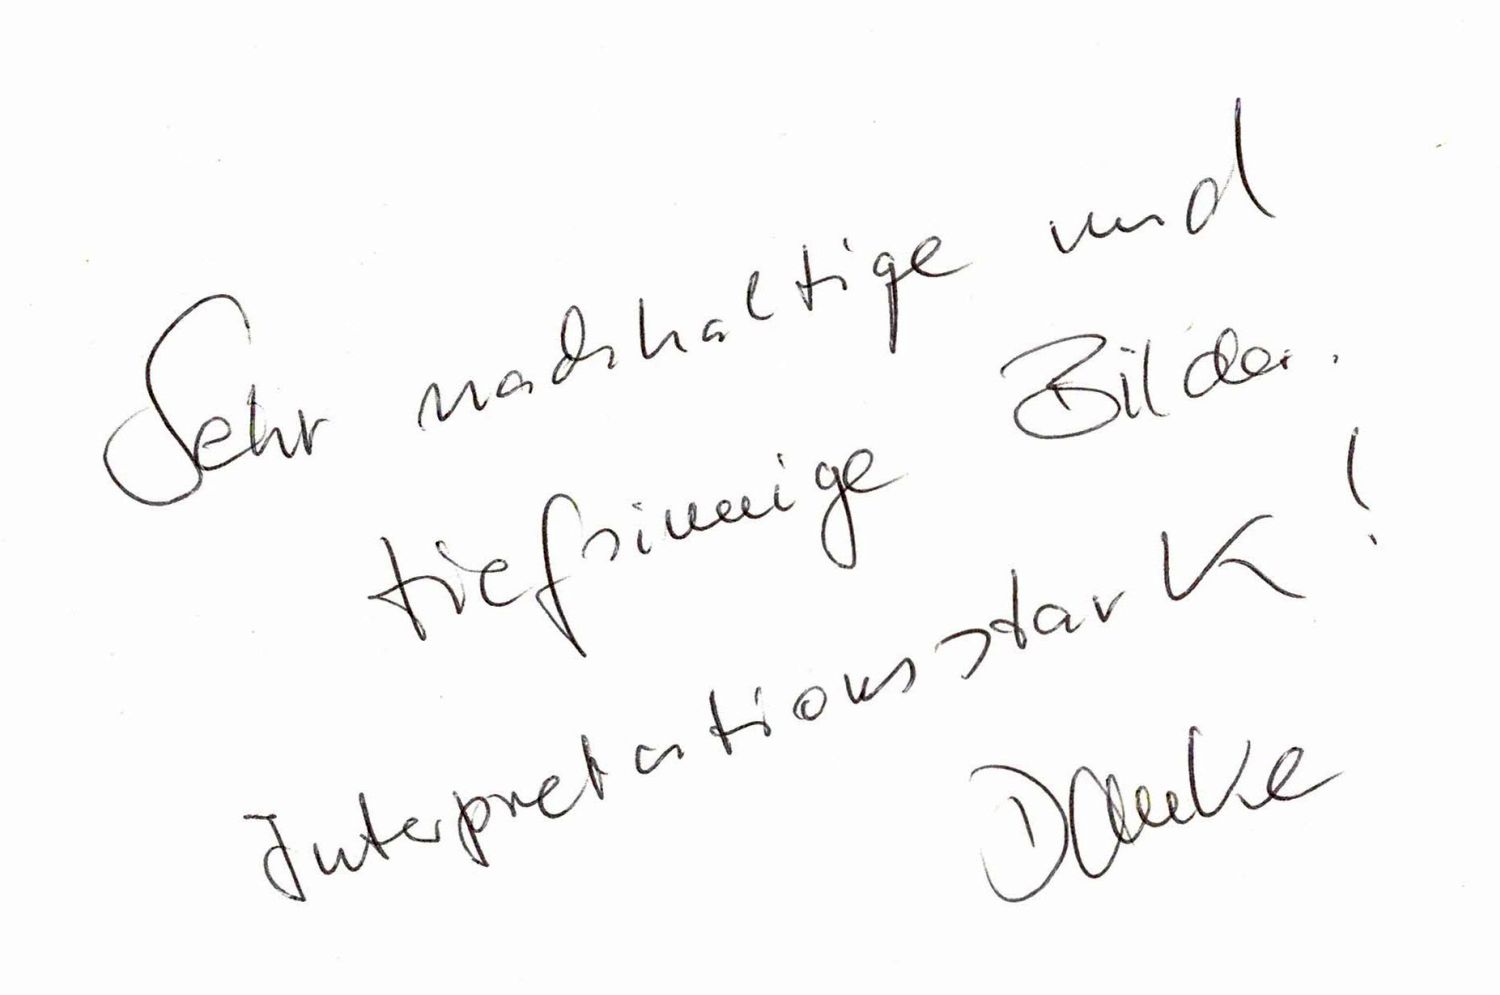 Sehr nachhaltige und
tiefsinnige Bilder.
Interpretationsstark!
Danke